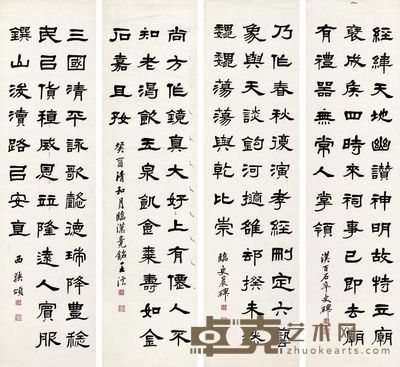 經緯天地幽讚神明故特立廟
褒成侯四時來祠事已即去廟
有禮器無常人掌領
漢百石卒史碑
乃作春秋復演孝經刪定六藝
象與天談鈎河擿雒却揆未然
巍巍蕩蕩與乾比崇
臨史晨碑
尚方作鏡真大好上有僊人不
知老渴飲玉泉飢食棗壽如金
石嘉且好
癸酉清和月臨漢竟銘
三國清平詠歌懿德瑞降豊稔
民㠯貨稙威恩竝隆遠人賓服
鐉山浚瀆路㠯安直
西狹頌
zhuokearts.com